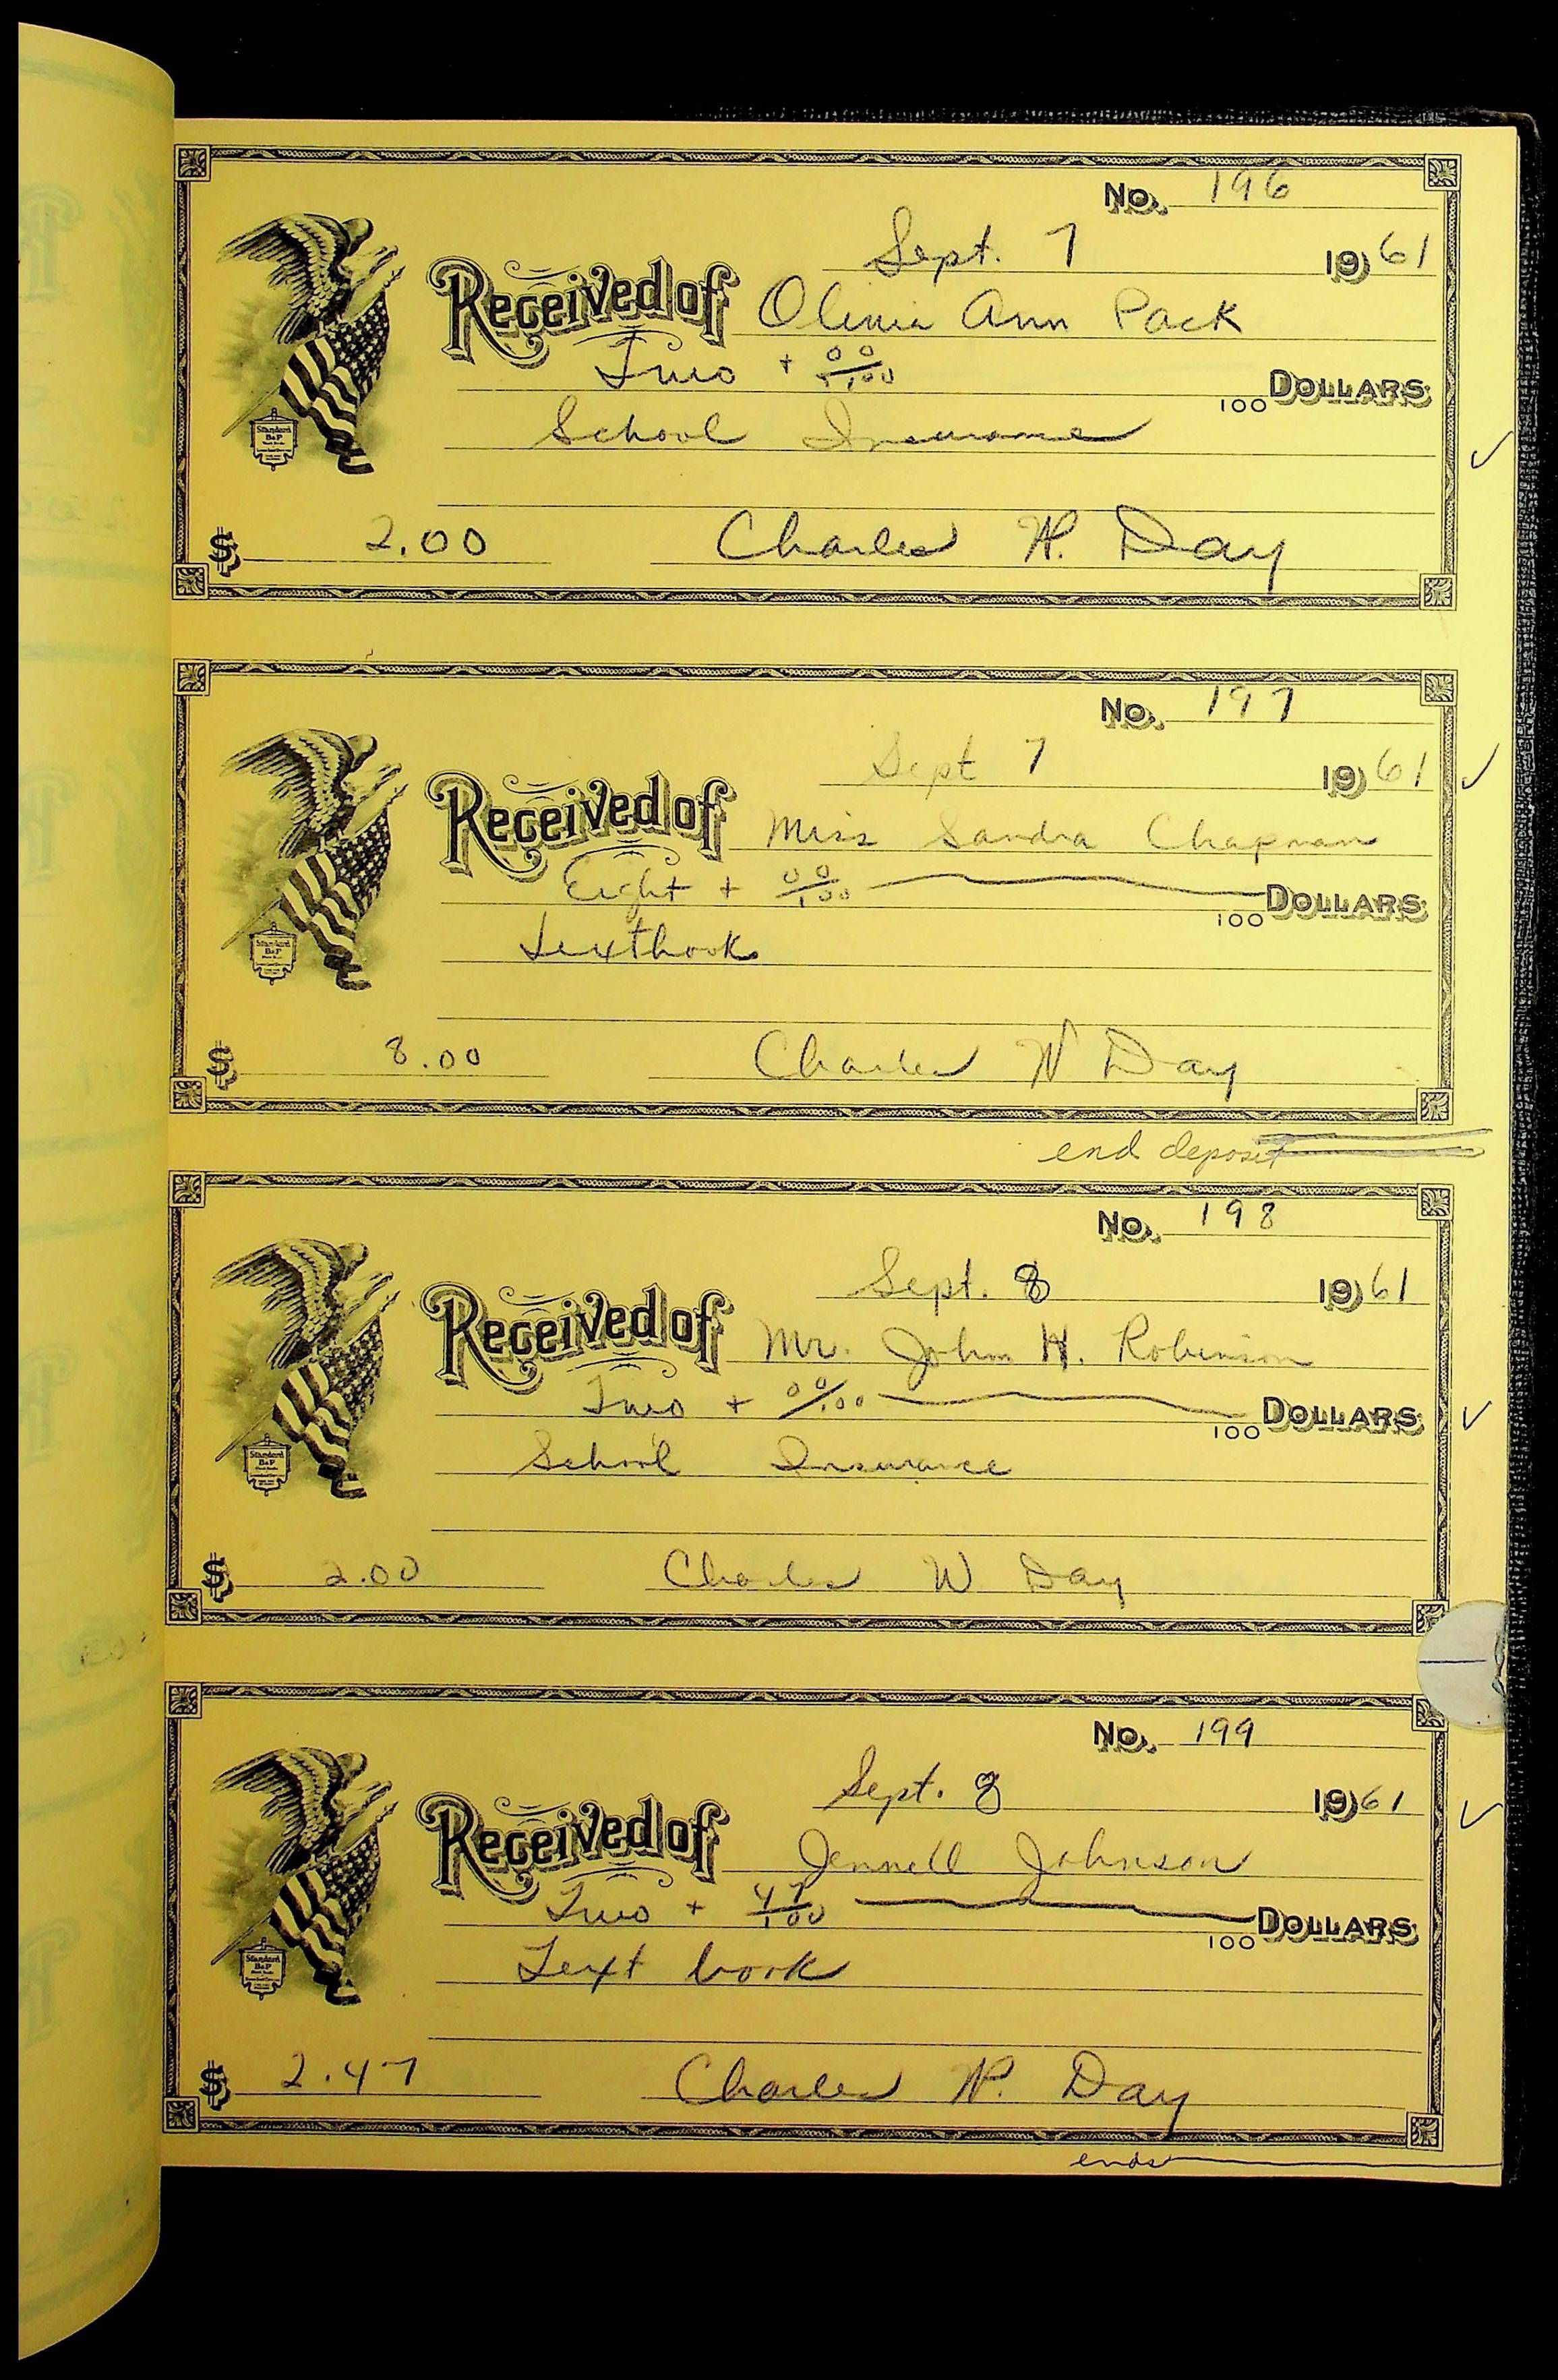 No. 196
Sept. 7 1961
Received of Olivia Ann Pack
Two + 00/100 100 DOLLARS
School Insurance
$ 2.00 Charles W. Day
No. 197
Sept 7 1961
Received of Miss Sandra Chapman
Eight + 00/100 100 DOLLARS
Textbooks
$ 8.00 Charles W Day
end deposit
No. 198
Sept. 8 1961
Received of Mr. John H. Robinson
Two + 00/100 100 DOLLARS
School Insurance
$ 2.00 Charles W Day
No. 199
Sept. 8 1961
Received of Jennell Johnson
Two + 47/100 100 DOLLARS
Text book
$ 2.47 Charles W. Day
ends